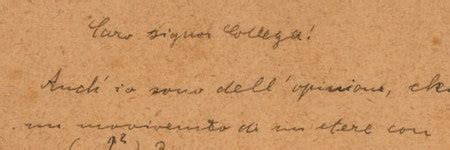 Caro signor Collega!
Anch'io sono dell'opinione, che
un movimento di un etere con